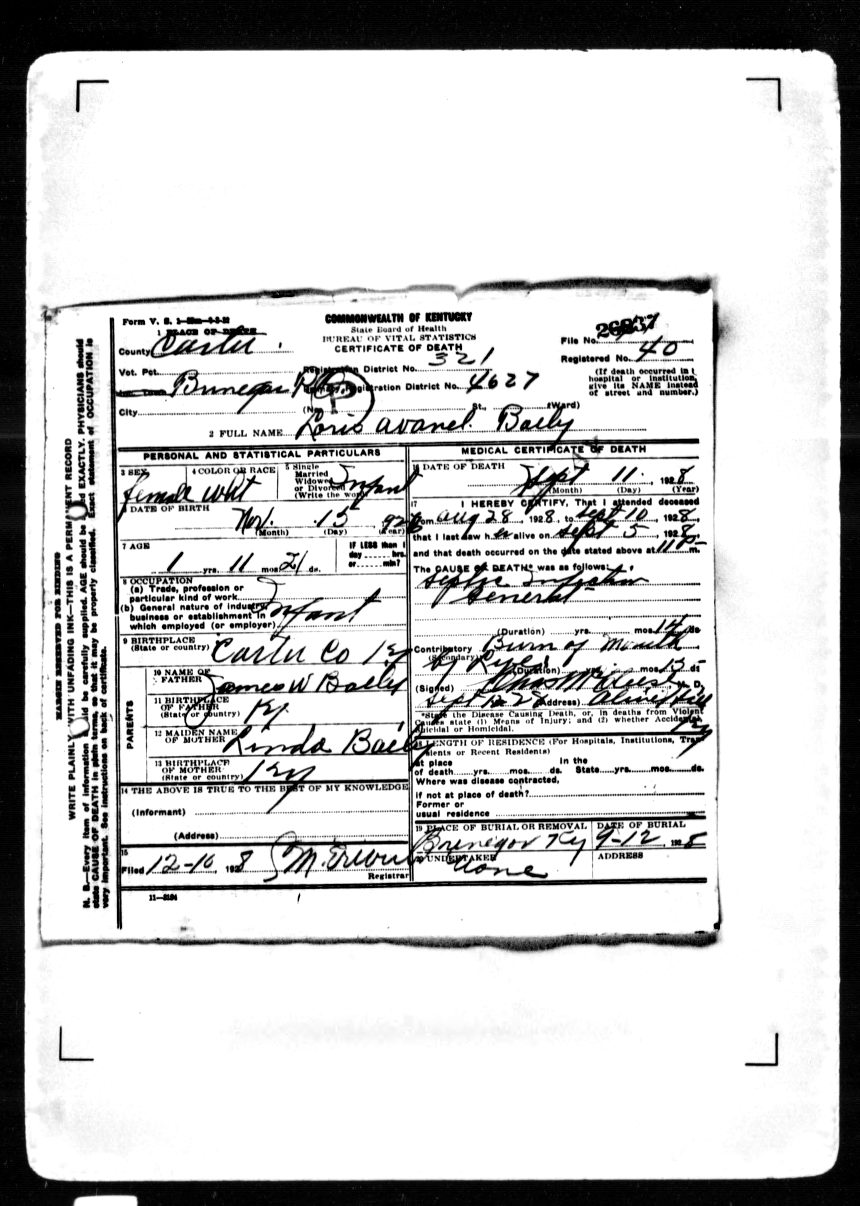 Form V. S. 1
1 PLACE OF DEATH
COMMONWEALTH OF KENTUCKY
State Board of Health
BUREAU OF VITAL STATISTICS
CERTIFICATE OF DEATH
File No. 
Registered No. 40
(If death occurred in a hospital or institution, give its NAME instead of street and number.)
County Carter
Vot. Pct.
Registration District No. 321
Primary Registration District No. 4627
City (No. St., Ward)
2 FULL NAME Loris Avanel Baily
PERSONAL AND STATISTICAL PARTICULARS
3 SEX female
4 COLOR OR RACE whit
5 Single Married Widowed or Divorced (Write the word) Infant
6 DATE OF BIRTH Nov. 15, 1926
(Month) (Day) (Year)
7 AGE 1 yrs. 11 mos. 21 ds.
IF LESS than 1 day hrs. or min?
8 OCCUPATION
(a) Trade, profession or particular kind of work
(b) General nature of industry, business or establishment in which employed (or employer) Infant
9 BIRTHPLACE (State or country) Carter Co Ky
PARENTS
10 NAME OF FATHER James W Bailey
11 BIRTHPLACE OF FATHER (State or country) Ky
12 MAIDEN NAME OF MOTHER Linda Baily
13 BIRTHPLACE OF MOTHER (State or country) Ky
14 THE ABOVE IS TRUE TO THE BEST OF MY KNOWLEDGE
(Informant)
(Address)
15
Filed 12-10, 1928
Registrar
11-3184
MEDICAL CERTIFICATE OF DEATH
16 DATE OF DEATH Sept 11, 1928
(Month) (Day) (Year)
17 I HEREBY CERTIFY, That I attended deceased
from Aug 28, 1928, to Sept 10, 1928
that I last saw her alive on Sept 5, 1928
and that death occurred on the date stated above at 11 m.
The CAUSE OF DEATH* was as follows:
Septic Infection
General
(Duration) yrs. mos. 14 ds.
Contributory Burn of Mouth
(Secondary) by Lye
(Duration) yrs. mos. 15 ds
(Signed) M. D.
Sept 12 28 (Address) Olive Hill
Ky
*State the Disease Causing Death, or, in deaths from Violent Causes state (1) Means of Injury; and (2) whether Accidental, Suicidal or Homicidal.
18 LENGTH OF RESIDENCE (For Hospitals, Institutions, Transients or Recent Residents)
At place of death yrs. mos. ds. In the State yrs. mos. ds.
Where was disease contracted,
if not at place of death?
Former or usual residence
19 PLACE OF BURIAL OR REMOVAL Brenegor Ky
DATE OF BURIAL 9-12, 1928
20 UNDERTAKER None
ADDRESS
MARGIN RESERVED FOR BINDING
WRITE PLAINLY WITH UNFADING INK—THIS IS A PERMANENT RECORD
N. B.—Every item of information should be carefully supplied. AGE should be stated EXACTLY. PHYSICIANS should
state CAUSE OF DEATH in plain terms, so that it may be properly classified. Exact statement of OCCUPATION is
very important. See instructions on back of certificate.